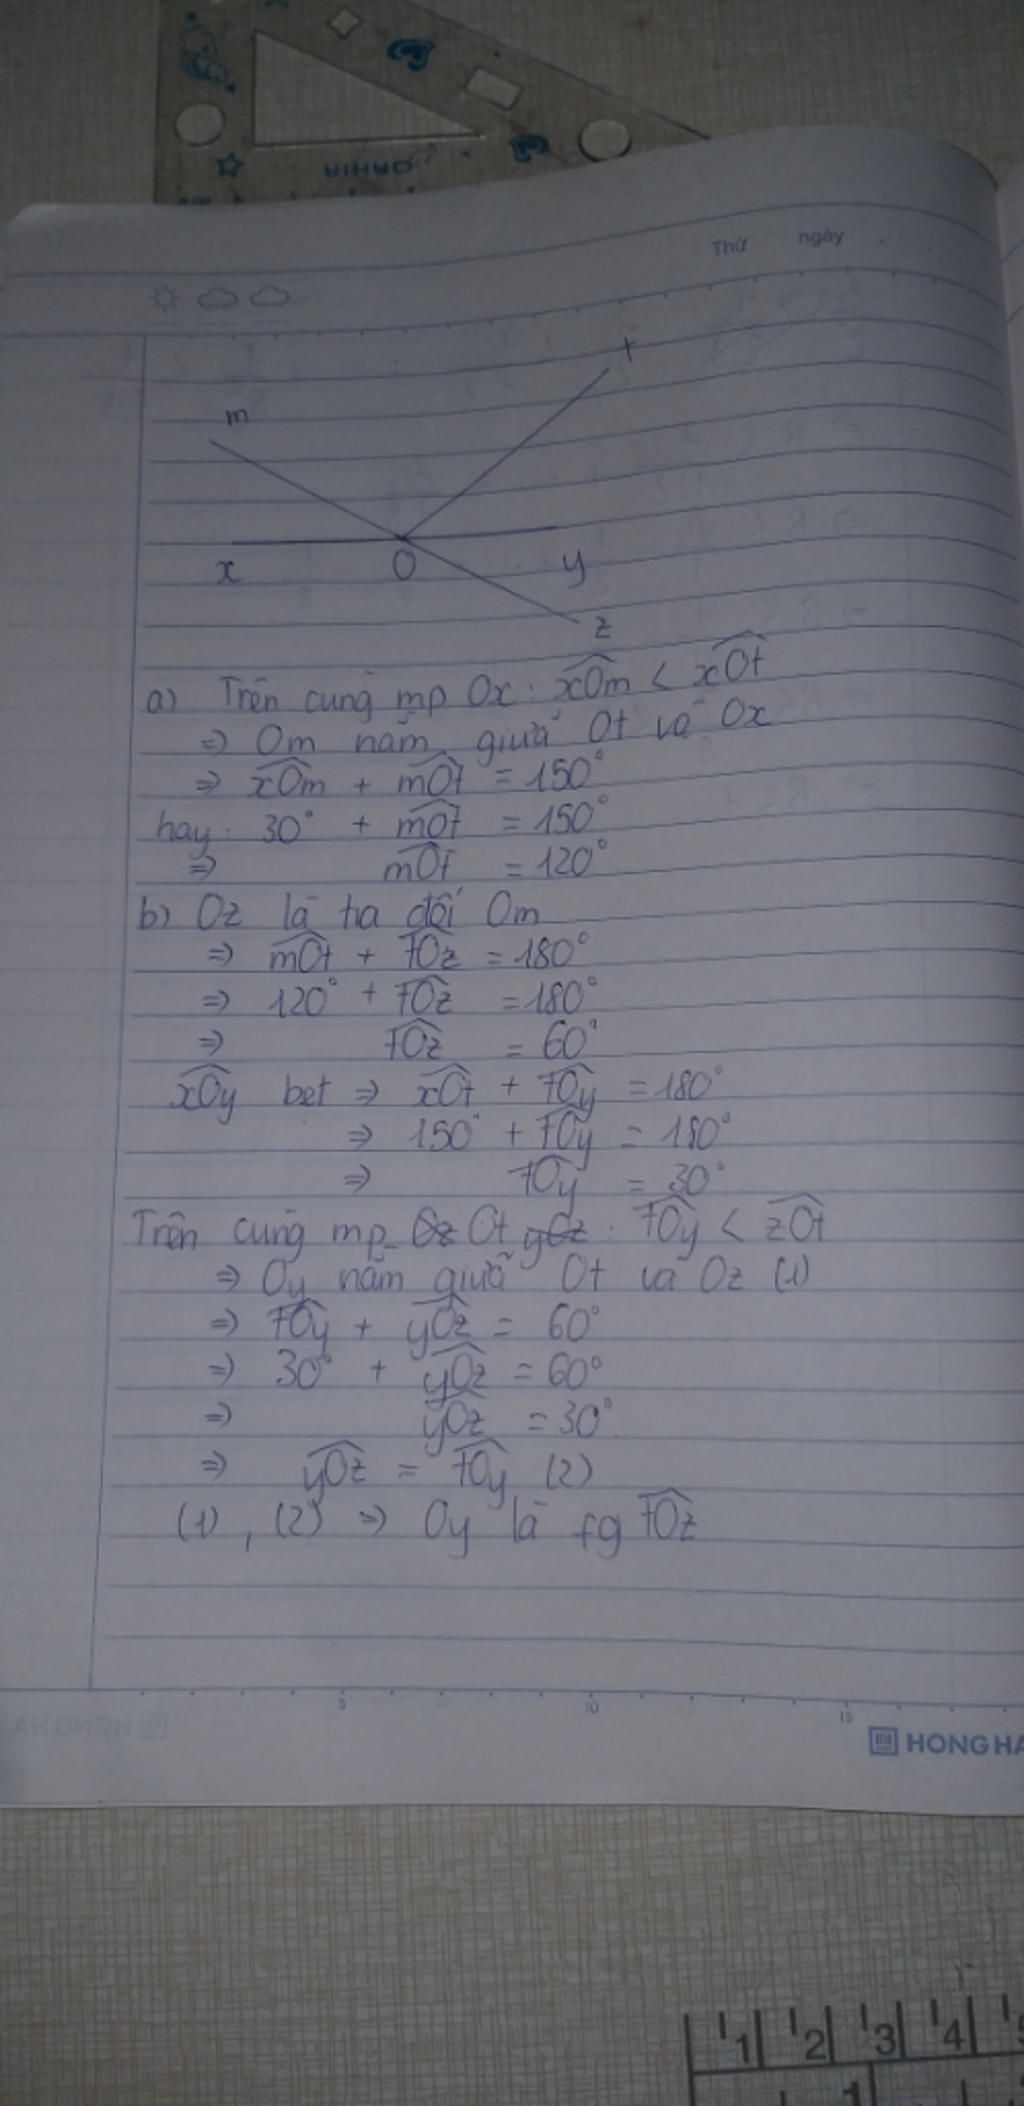 Thứ ngày
m
t
x O y
z
a) Trên cùng mp Ox: xOm < xOt
=> Om nằm giữa Ot và Ox
=> xOm + mOt = 150°
hay: 30° + mOt = 150°
=> mOt = 120°
b) Oz là tia đối Om
=> mOt + tOz = 180°
=> 120° + tOz = 180°
=> tOz = 60°
xOy bẹt => xOt + tOy = 180°
=> 150° + tOy = 180°
=> tOy = 30°
Trên cùng mp Ot : tOy < zOt
=> Oy nằm giữa Ot và Oz (1)
=> tOy + yOz = 60°
=> 30° + yOz = 60°
=> yOz = 30°
=> yOz = tOy (2)
(1), (2) => Oy là fg tOz
5 10 15
HONG HA
1 2 3 4
1